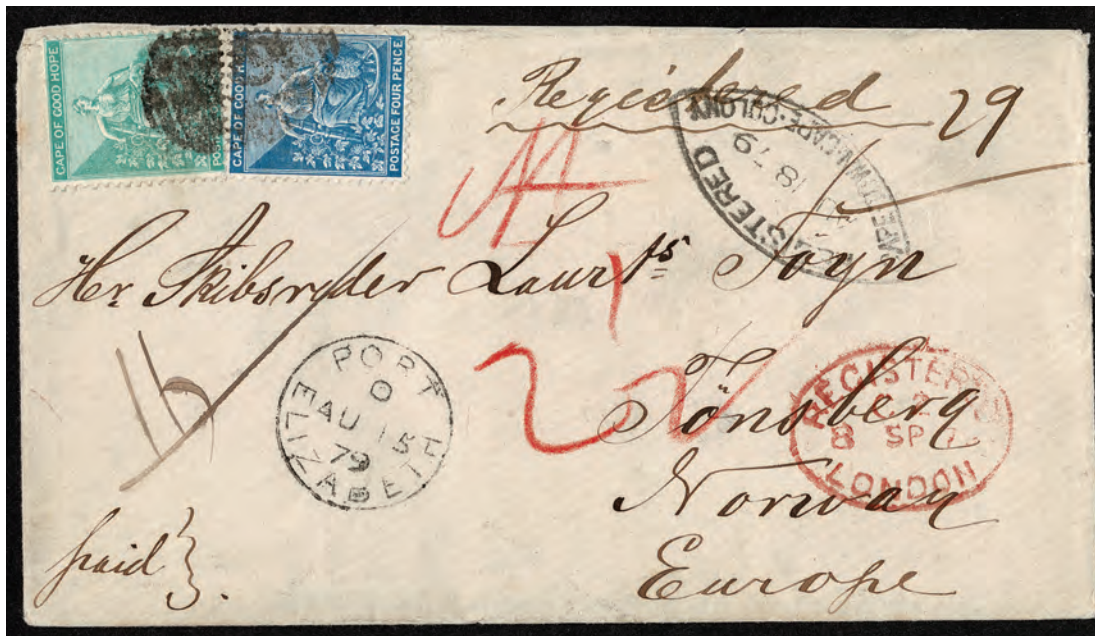 CAPE OF GOOD HOPE
CAPE OF GOOD H
POSTAGE FOUR PENCE
Registered 29
REGISTERED
18 79
CAPE TOWN CAPE·COLONY
Hr. Skibsryder Laurts Foyn
PORT ELIZABETH
O
AU 15
79
Tönsberg
REGISTERED
8 SP 7
LONDON
Norway
paid
Europe